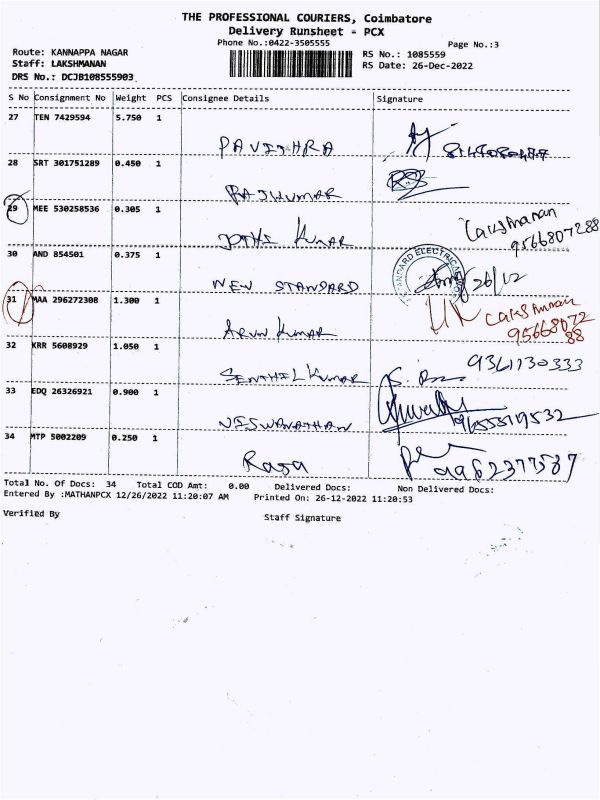 THE PROFESSIONAL COURIERS, Coimbatore
Delivery Runsheet - PCX
Phone No.:0422-3505555
Page No.:3
Route: KANNAPPA NAGAR
RS No.: 1085559
Staff: LAKSHMANAN
RS Date: 26-Dec-2022
DRS No.: DCJB108555903
S No Consignment No Weight PCS Consignee Details Signature
27 TEN 7429594 5.750 1
PAVITHRA
28 SRT 301751289 0.450 1
RAJKUMAR
29 MEE 530258536 0.305 1
Lakshmanan
JOTHI KUMAR 9566807288
30 AND 854501 0.375 1
STANDARD ELECTRICAL
NEW STANDARD 26/12
31 MAA 296272308 1.300 1
Lakshmanan
ARUN KUMAR 9566807288
32 KRR 5608929 1.050 1
9361130333
SENTHIL KUMAR
33 EDQ 26326921 0.900 1
VISWANATHAN 9655519532
34 MTP 5002209 0.250 1
Raja 9962377587
Total No. Of Docs: 34 Total COD Amt: 0.00 Delivered Docs: Non Delivered Docs:
Entered By :MATHANPCX 12/26/2022 11:20:07 AM Printed On: 26-12-2022 11:20:53
Verified By Staff Signature